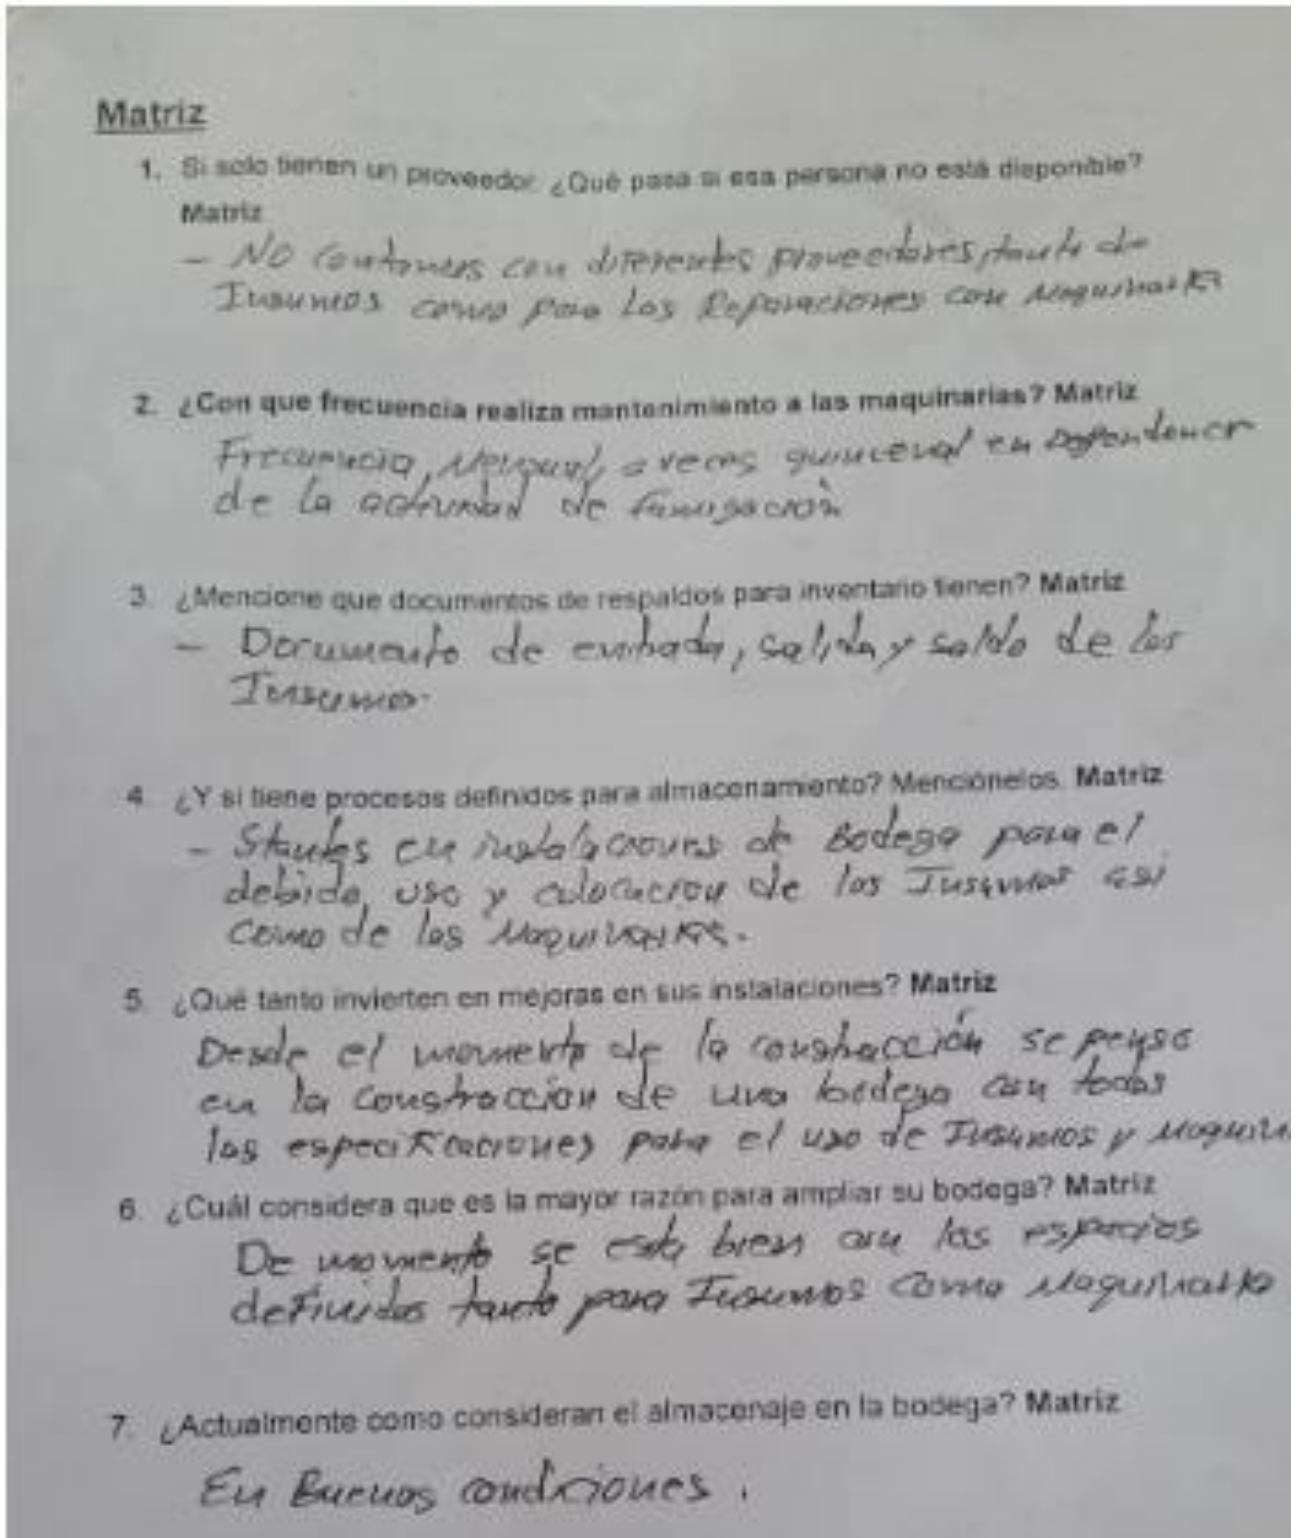 Matriz
1. Si solo tienen un proveedor. ¿Qué pasa si esa persona no está disponible?
Matriz
- No contamos con diferentes proveedores, tanto de
Insumos como para las Reparaciones con Maquinaria
2. ¿Con que frecuencia realiza mantenimiento a las maquinarias? Matriz
Frecuencia, Mensual, a veces quincenal en dependencia
de la actividad de fumigación
3. ¿Mencione que documentos de respaldos para inventario tienen? Matriz
- Documento de entrada, salida y saldo de los
Insumos.
4. ¿Y si tiene procesos definidos para almacenamiento? Menciónelos. Matriz
- Stantes en instalaciones de Bodega para el
debido, uso y colocacion de los Insumos asi
como de las Maquinarias.
5. ¿Qué tanto invierten en mejoras en sus instalaciones? Matriz
Desde el momento de la construcción se penso
en la construccion de una bodega con todas
las especificaciones para el uso de Insumos y Maquin
6. ¿Cuál considera que es la mayor razón para ampliar su bodega? Matriz
De momento se esta bien con los espacios
definidos tanto para Insumos como Maquinaria
7. ¿Actualmente como consideran el almacenaje en la bodega? Matriz
En Buenas condiciones.